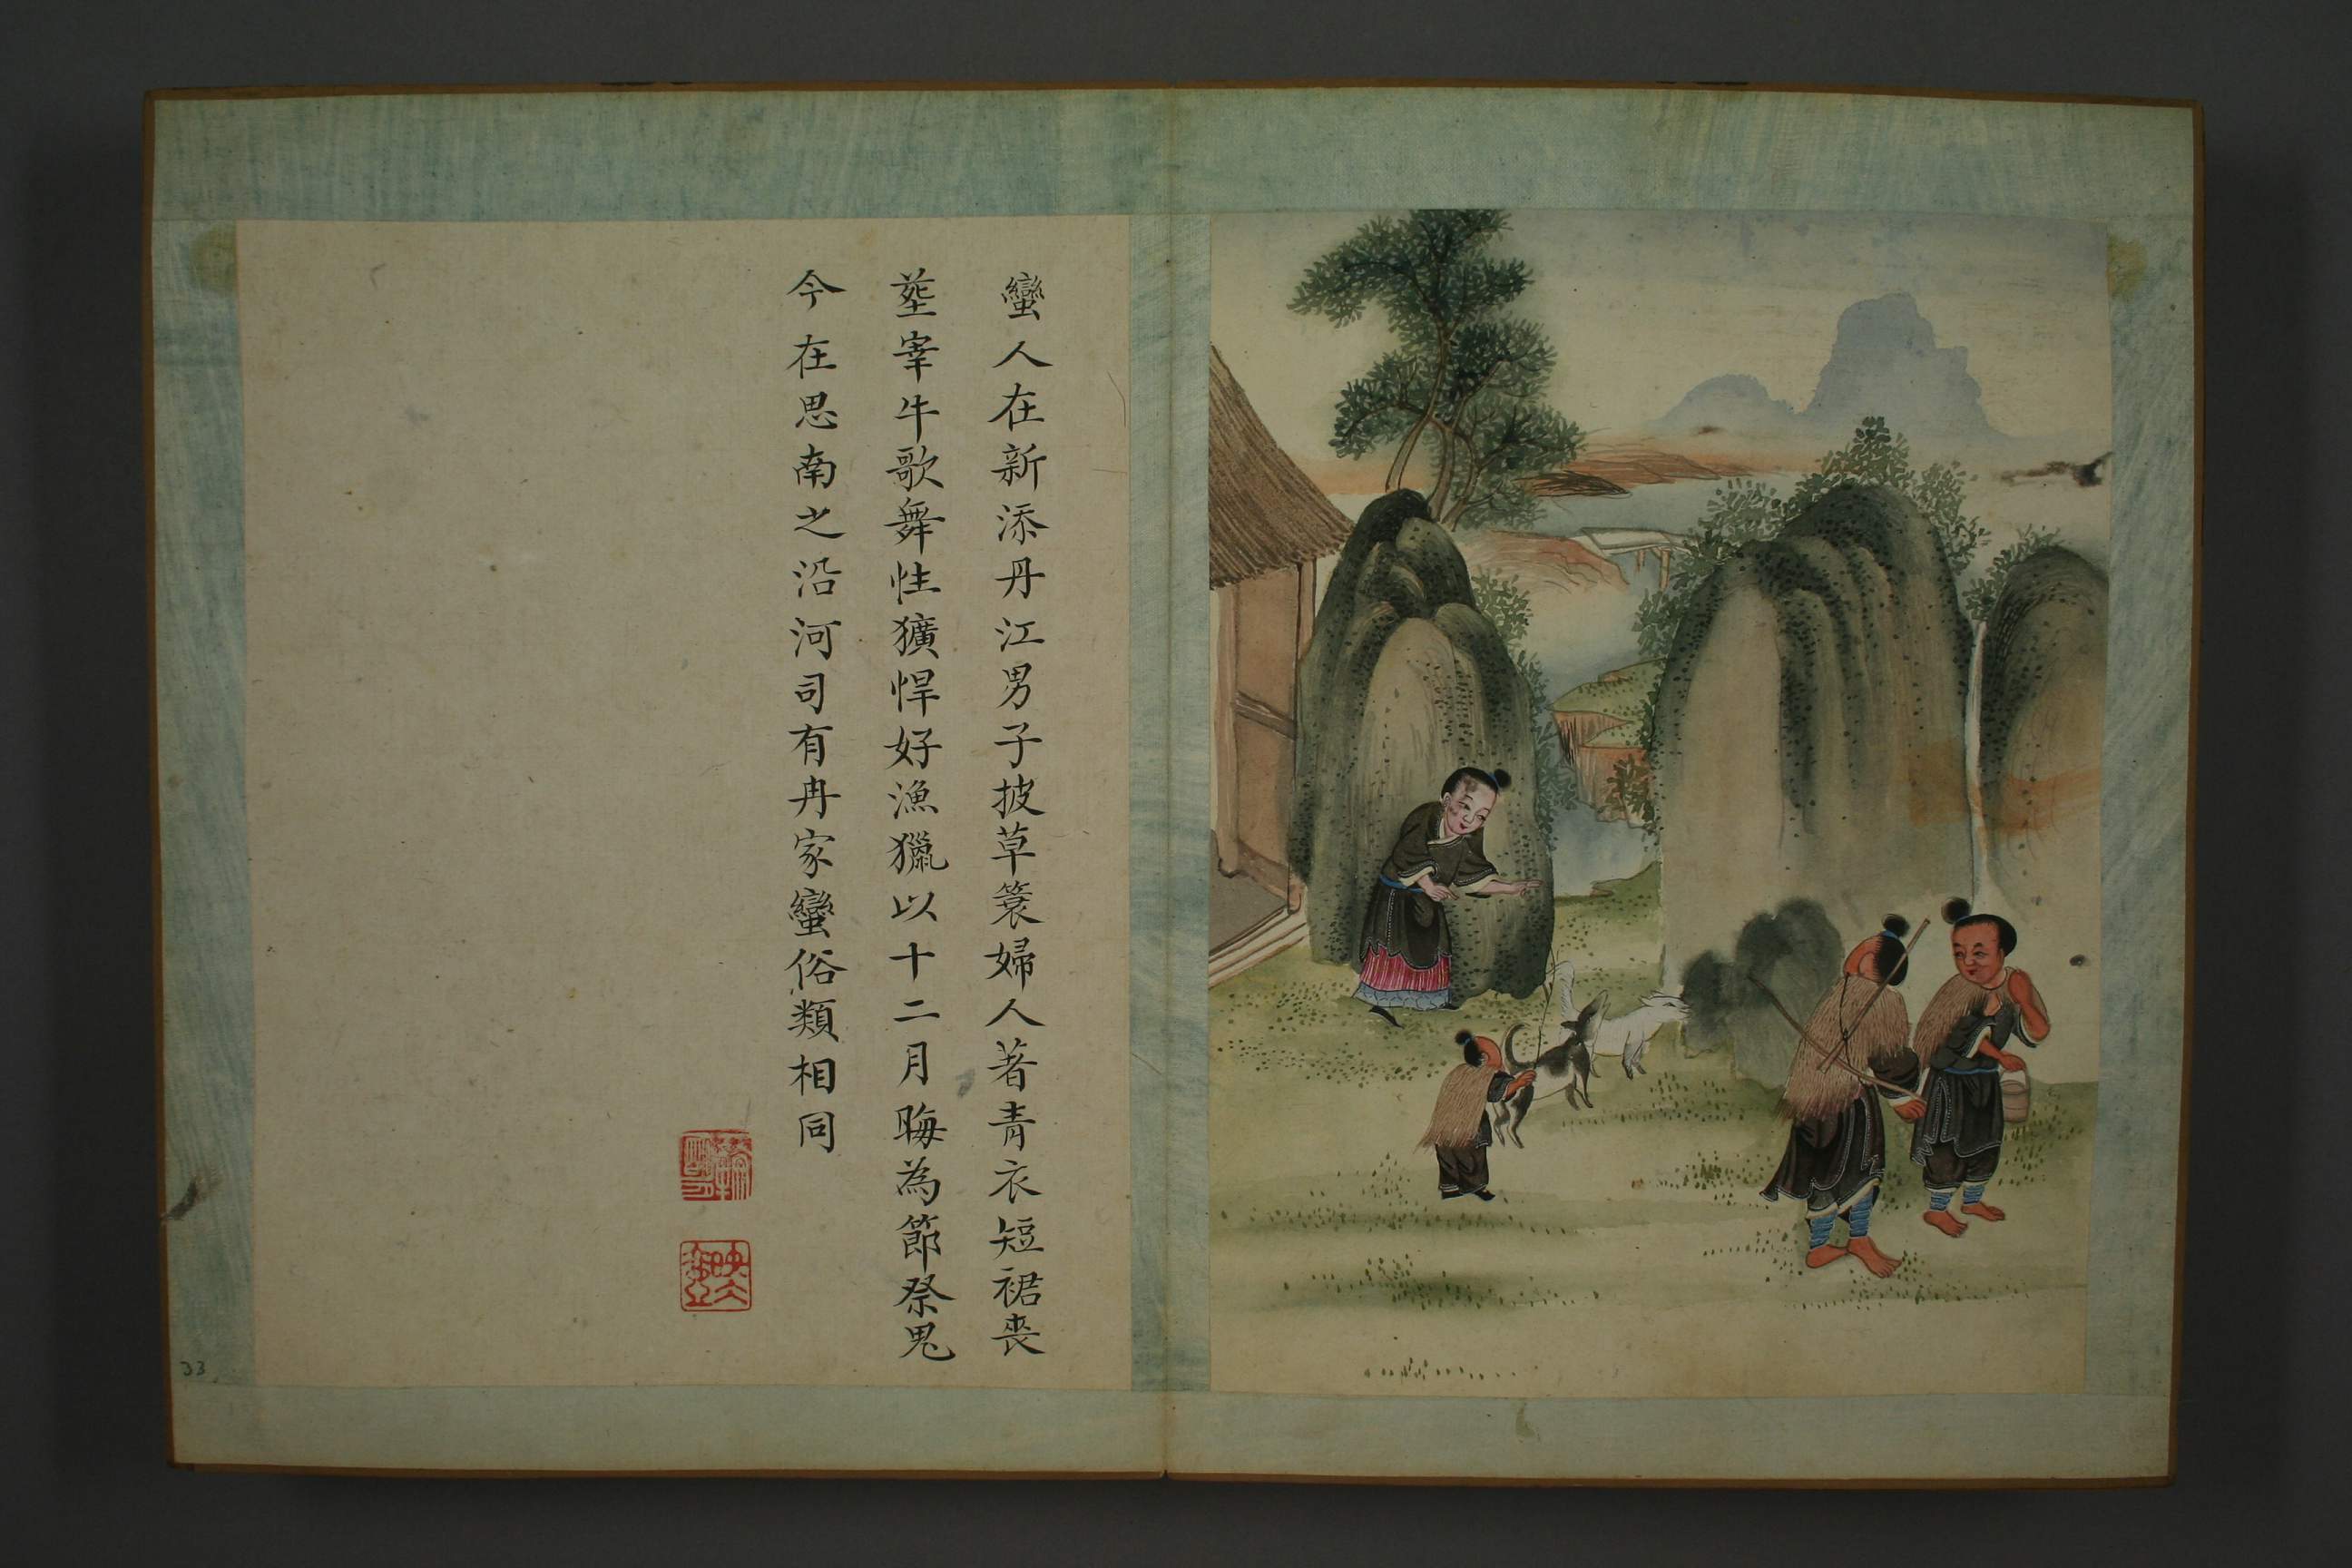 蠻人在新添丹江男子披草簑婦人著青衣短裙喪
塟宰牛歌舞性獷悍好漁獵以十二月晦為節祭鬼
今在思南之沿河司有冉家蠻俗類相同
33